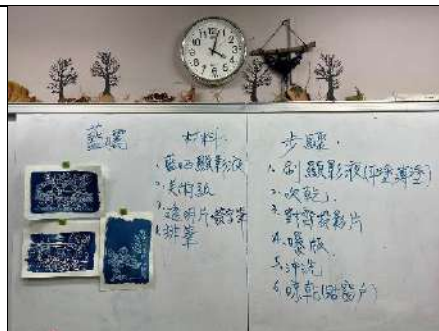 藍曬
材料.
1. 藍晒顯影液
2. 美術紙
4. 排筆
步驟.
1. 刷顯影液(平塗薄塗)
2. 吹乾
3. 對齊投影片
4. 曝版
5. 沖洗
6. 晾乾(貼窗戶)